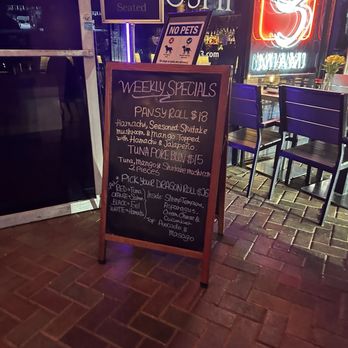 Seated
NO PETS
3
WEEKLY SPECIALS
PANSY ROLL $18
Hamachi, Seasoned Shitake
mushroom & Mango Topped
with Hamachi & Jalapeño
TUNA POKE BOWL $15
Tuna, Mango & Shitake mushroom
2 Pieces
PICK YOUR DRAGON ROLL
RED = Tuna
BLACK = Eel
WHITE =
Inside: Shrimp Tempura,
Asparagus,
Cream Cheese &
Cucumber
Top: Avocado &
Masago